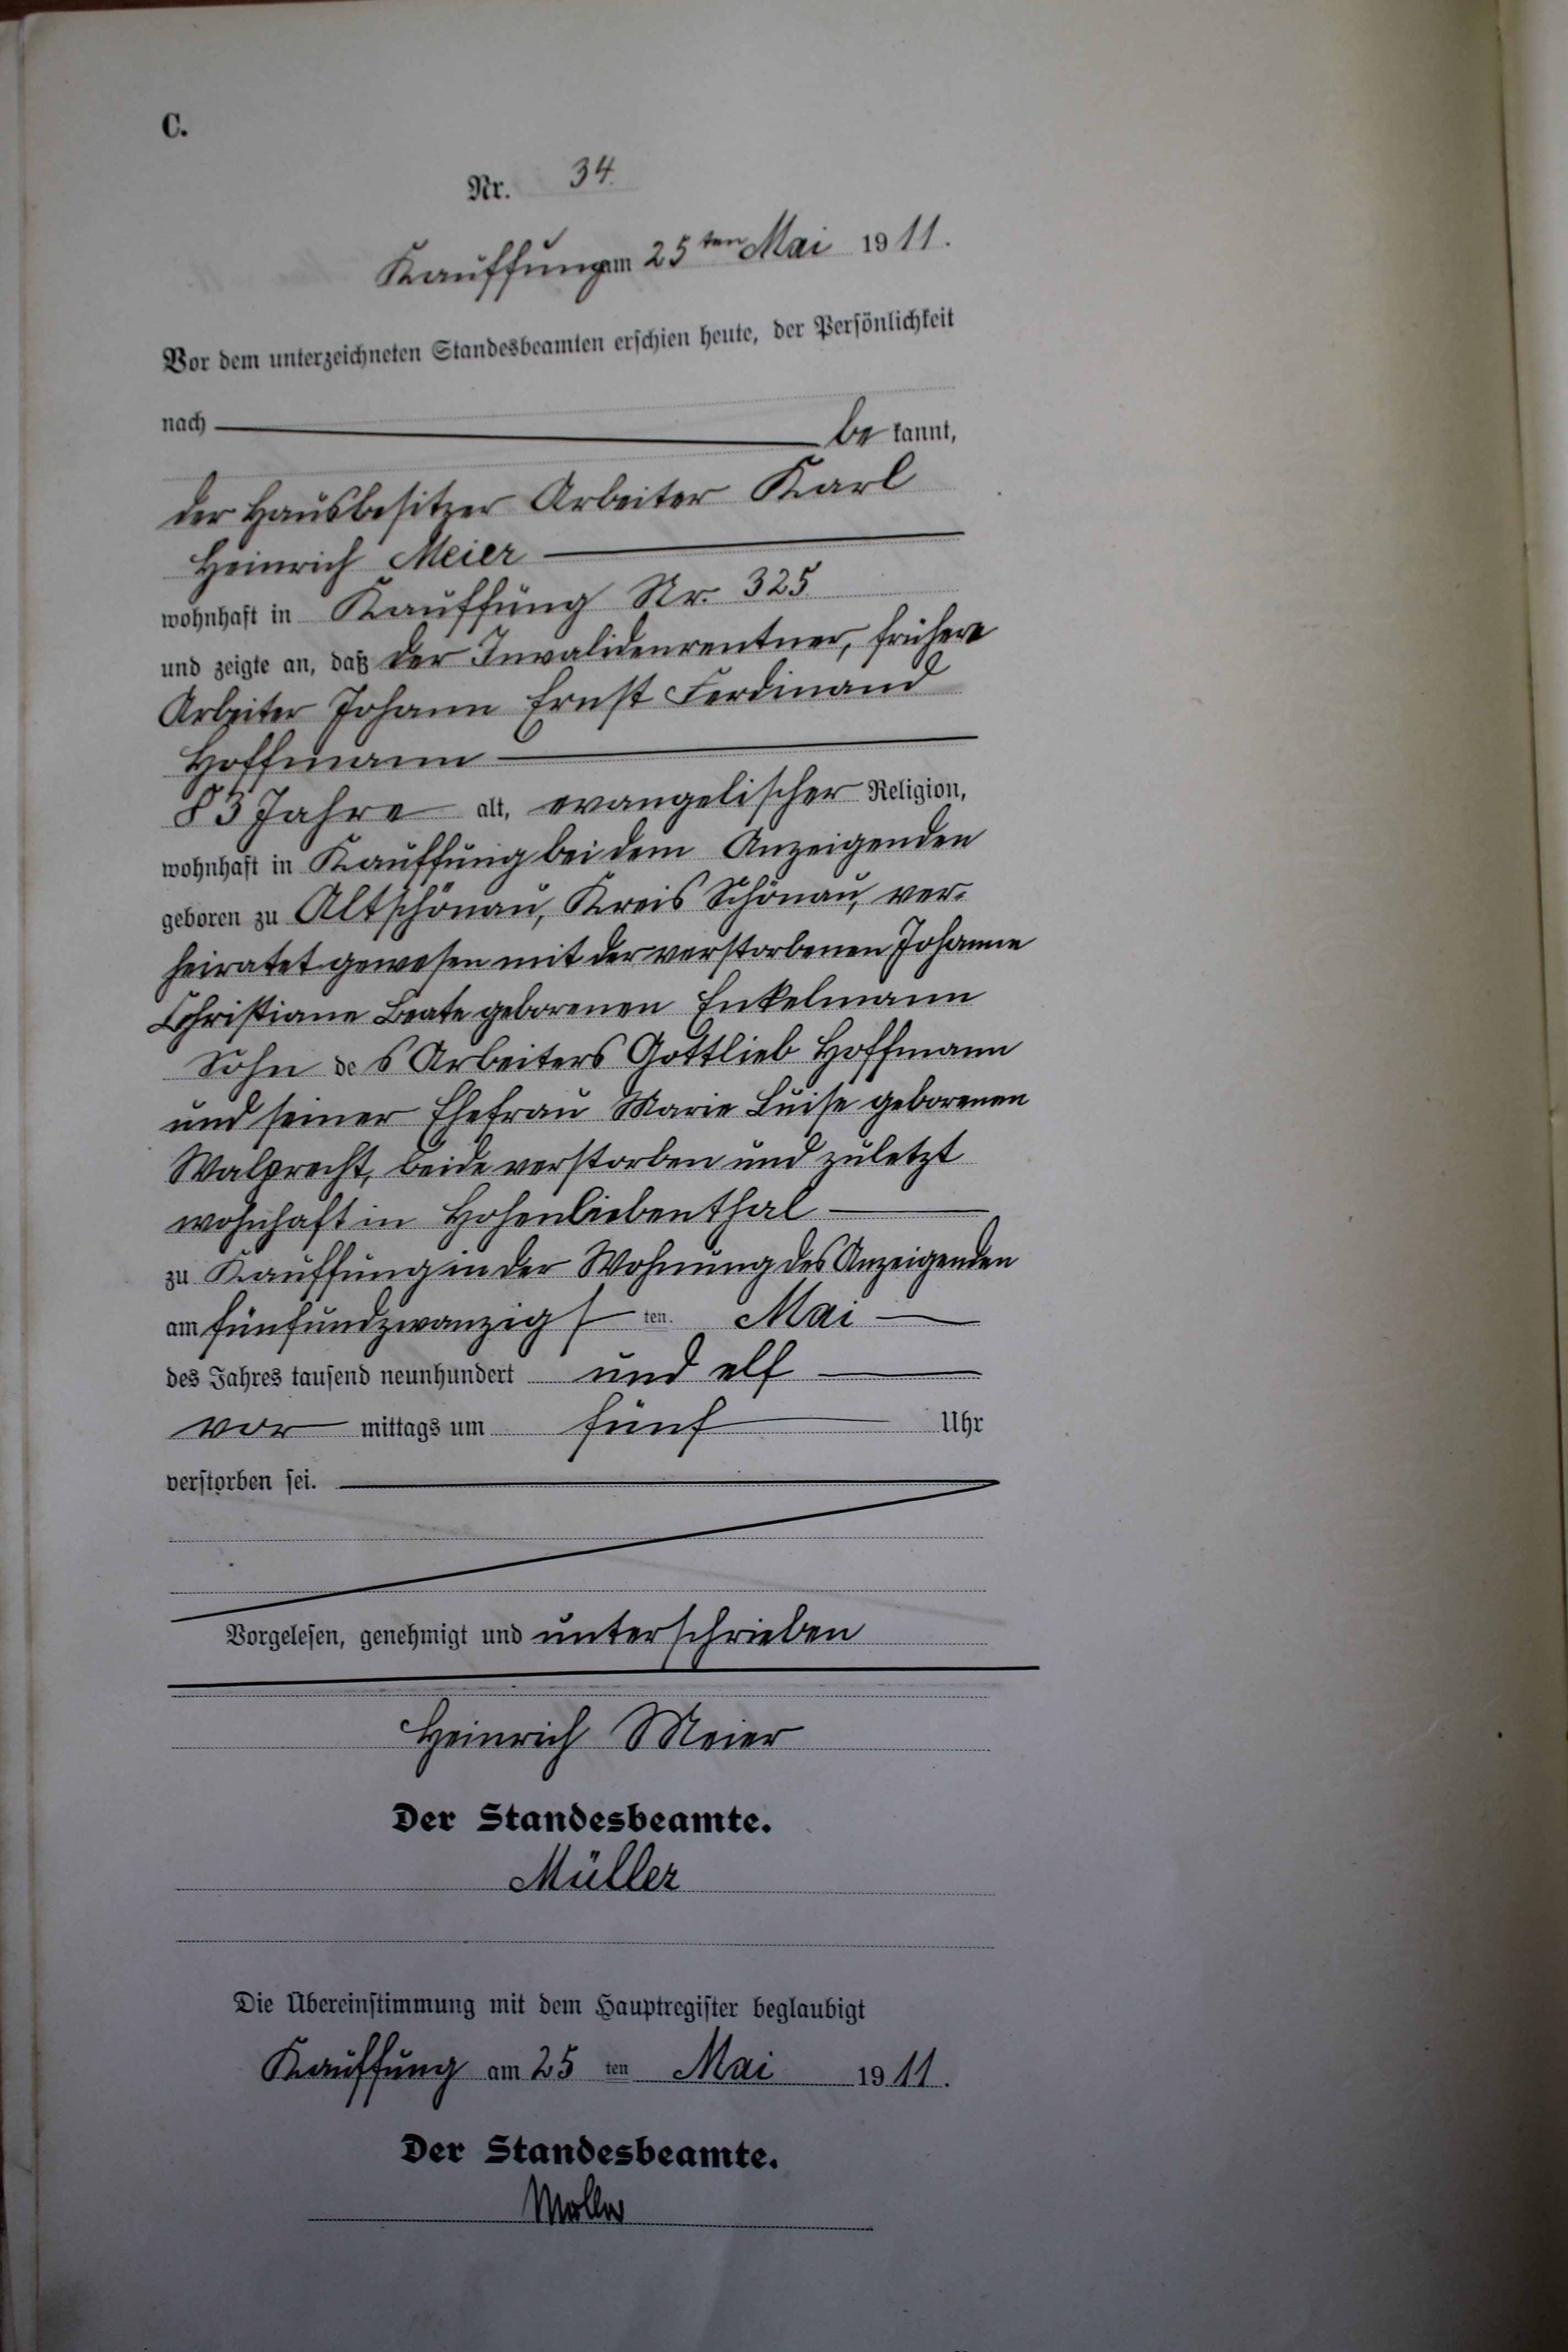 C.
Nr. 34.
Kauffung am 25ten Mai 1911.
Vor dem unterzeichneten Standesbeamten erschien heute, der Persönlichkeit
nach be kannt,
der Hausbesitzer Arbeiter Karl
Heinrich Meier
wohnhaft in Kauffung Nr. 325
und zeigte an, daß der Invalidenrentner, frühere
Arbeiter Johann Ernst Ferdinand
Hoffmann
83 Jahre alt, evangelischer Religion,
wohnhaft in Kauffung bei dem Anzeigenden
geboren zu Altschönau, Kreis Schönau, ver-
heiratet gewesen mit der verstorbenen Johanne
Christiane Beate geborenen Enkelmann
Sohn des Arbeiters Gottlieb Hoffmann
und seiner Ehefrau Marie Luise geborenen
Walprecht, beide verstorben und zuletzt
wohnhaft in Hohenliebenthal
zu Kauffung in der Wohnung des Anzeigenden
am fünfundzwanzigsten Mai
des Jahres tausend neunhundert und elf
vor mittags um fünf Uhr
verstorben sei.
Vorgelesen, genehmigt und unterschrieben
Heinrich Meier
Der Standesbeamte.
Müller
Die Übereinstimmung mit dem Hauptregister beglaubigt
Kauffung am 25 ten Mai 1911.
Der Standesbeamte.
Müller